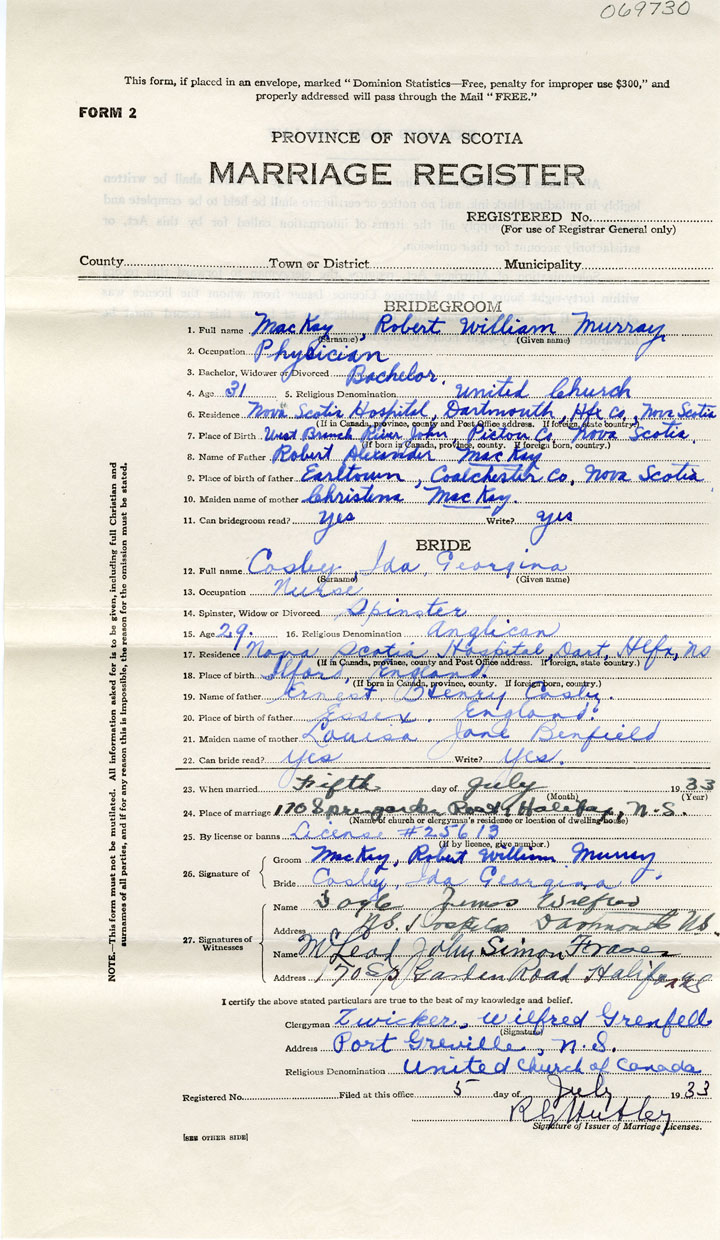 069730
This form, if placed in an envelope, marked "Dominion Statistics—Free, penalty for improper use $300," and
properly addressed will pass through the Mail "FREE."
FORM 2
PROVINCE OF NOVA SCOTIA
MARRIAGE REGISTER
REGISTERED No.
(For use of Registrar General only)
County Town or District Municipality
BRIDEGROOM
1. Full name MacKay, Robert William Murray
(Surname) (Given name)
2. Occupation Physician
3. Bachelor, Widower or Divorced Bachelor.
4. Age 31 5. Religious Denomination United Church
6. Residence Nova Scotia Hospital, Dartmouth, Hfx Co, Nova Scotia
(If in Canada, province, county and Post Office address. If foreign, state country.)
7. Place of Birth West Branch River John, Pictou Co. Nova Scotia.
(If born in Canada, province, county. If foreign born, country.)
8. Name of Father Robert Alexander MacKay
9. Place of birth of father Earltown, Coalchester Co, Nova Scotia
10. Maiden name of mother Christina MacKay.
11. Can bridegroom read? Yes Write? Yes
BRIDE
12. Full name Cosby, Ida Georgina
(Surname) (Given name)
13. Occupation Nurse
14. Spinster, Widow or Divorced Spinster
15. Age 29. 16. Religious Denomination Anglican
17. Residence Nova Scotia Hospital, Dart. Hlfx, NS
(If in Canada, province, county and Post Office address. If foreign, state country.)
18. Place of birth Ilford, England.
(If born in Canada, province, county. If foreign born, country.)
19. Name of father Ernest Henry Cosby.
20. Place of birth of father Essex. England.
21. Maiden name of mother Louisa Jane Benfield
22. Can bride read? Yes Write? Yes.
23. When married Fifth day of July 1933
(Month) (Year)
24. Place of marriage 170 Spring Garden Road, Halifax, N.S.
(Name of church or clergyman's residence or location of dwelling house)
25. By license or banns License #25613
(If by licence, give number.)
26. Signature of Groom MacKay, Robert William Murray
Bride Cosby, Ida Georgina
27. Signatures of Witnesses
Name James
Address N.S. Hospital Dartmouth N.S.
Name McLeod John Simon Fraser
Address 170 Sp Garden Road Halifax NS
I certify the above stated particulars are true to the best of my knowledge and belief.
Clergyman Zwicker, Wilfred Grenfell
(Signature)
Address Port Greville, N.S.
Religious Denomination United Church of Canada
Registered No. Filed at this office 5 day of July 1933
Signature of Issuer of Marriage Licenses.
[SEE OTHER SIDE]
NOTE.—This form must not be mutilated. All information asked for is to be given, including full Christian and
surnames of all parties, and if for any reason this is impossible, the reason for the omission must be stated.